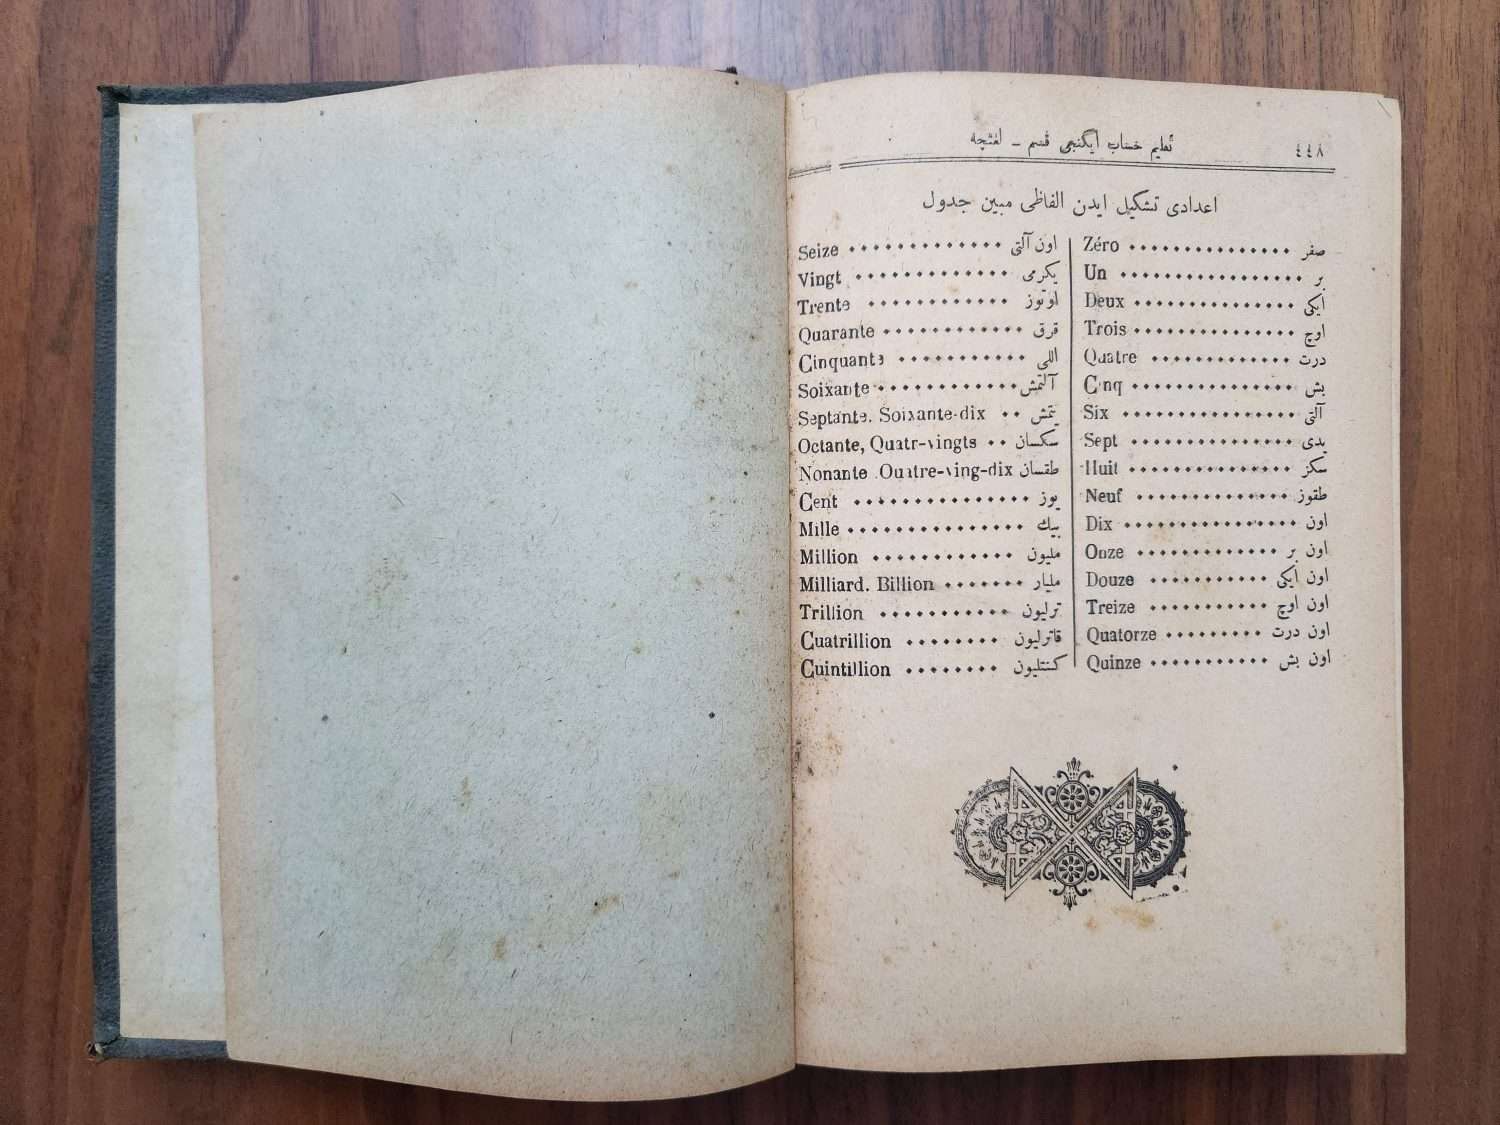 تعلیم حساب ایکنجی قسم ـ لغتچه ٤٤٨
اعدادی تشکیل ایدن الفاظی مبین جدول
Zéro صفر
Un بر
Deux ایکی
Trois اوچ
Quatre درت
Cinq بش
Six آلتی
Sept یدی
Huit سکز
Neuf طقوز
Dix اون
Onze اون بر
Douze اون ایکی
Treize اون اوچ
Quatorze اون درت
Quinze اون بش
Seize اون آلتی
Vingt یکرمی
Trente اوتوز
Quarante قرق
Cinquante اللی
Soixante آلتمش
Septante. Soixante-dix یتمش
Octante, Quatr-vingts سکسان
Nonante .Quatre-ving-dix طقسان
Cent یوز
Mille بیك
Million ملیون
Milliard. Billion ملیار
Trillion ترلیون
Cuatrillion قاترلیون
Cuintillion کنتلیون